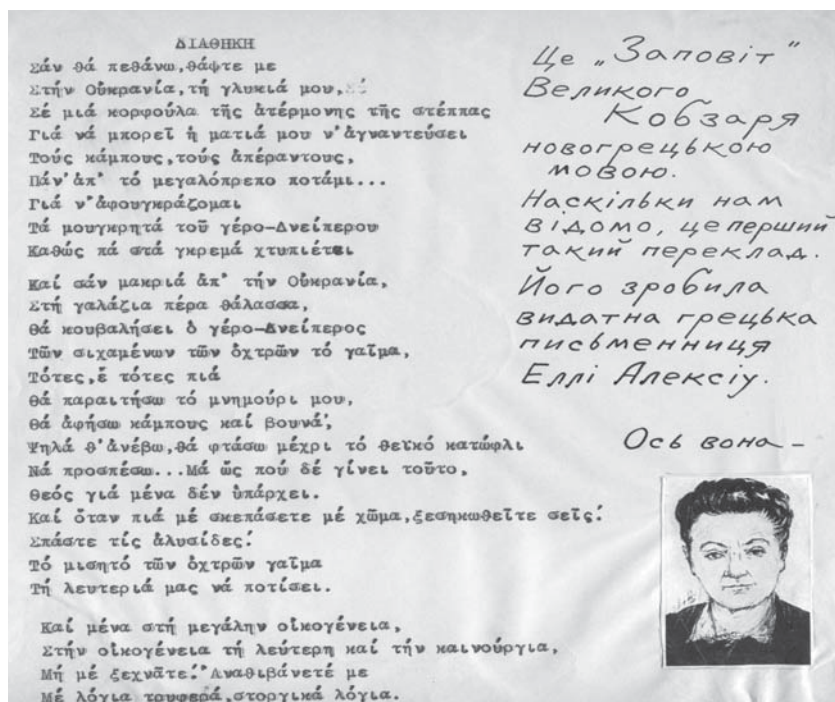 ΔΙΑΘΗΚΗ
Σάν θά πεθάνω,θάφτε με
Στήν Οὐκρανία,τή γλυκιά μου,
Σέ μιά κορφούλα τῆς ἀτέρμονης τῆς στέππας
Γιά νά μπορεῖ ἡ ματιά μου ν'ἀγναντεύσει
Τούς κάμπους,τούς ἀπέραντους,
Πάν'ἀπ' τό μεγαλόπρεπο ποτάμι...
Γιά ν'ἀφουγκράζομαι
Τά μουγκρητά τοῦ γέρο-Δνείπερου
Καθώς πά στά γκρεμά χτυπιέται
Καί σάν μακριά ἀπ' τήν Οὐκρανία,
Στή γαλάζια πέρα θάλασσα,
θά κουβαλήσει ὁ γέρο-Δνείπερος
Τῶν σιχαμένων τῶν ὀχτρῶν τό γαῖμα,
Τότες,ἔ τότες πιά
θά παραιτήσω τό μνημούρι μου,
θά ἀφήσω κάμπους καί βουνά,
Ψηλά θ'ἀνέβω,θά φτάσω μέχρι τό θεϊκό κατώφλι
Νά προσπέσω...Μά ὥς πού δέ γίνει τοῦτο,
θεός γιά μένα δέν ὑπάρχει.
Καί ὅταν πιά μέ σκεπάσετε μέ χῶμα,ξεσηκωθεῖτε σεῖς!
Σπάστε τίς ἀλυσίδες!
Τό μισητό τῶν ὀχτρῶν γαῖμα
Τή λευτεριά μας νά ποτίσει.
Καί μένα στή μεγάλην οἰκογένεια,
Στήν οἰκογένεια τή λεύτερη καί τήν καινούργια,
Μή μέ ξεχνᾶτε!'Αναθιβάνετέ με
Μέ λόγια τρυφερά,στοργικά λόγια.
Це „Заповіт"
Великого
Кобзаря
новогрецькою
мовою.
Наскільки нам
відомо, це перший
такий переклад.
Його зробила
видатна грецька
письменниця
Еллі Алексіу.
Ось вона –